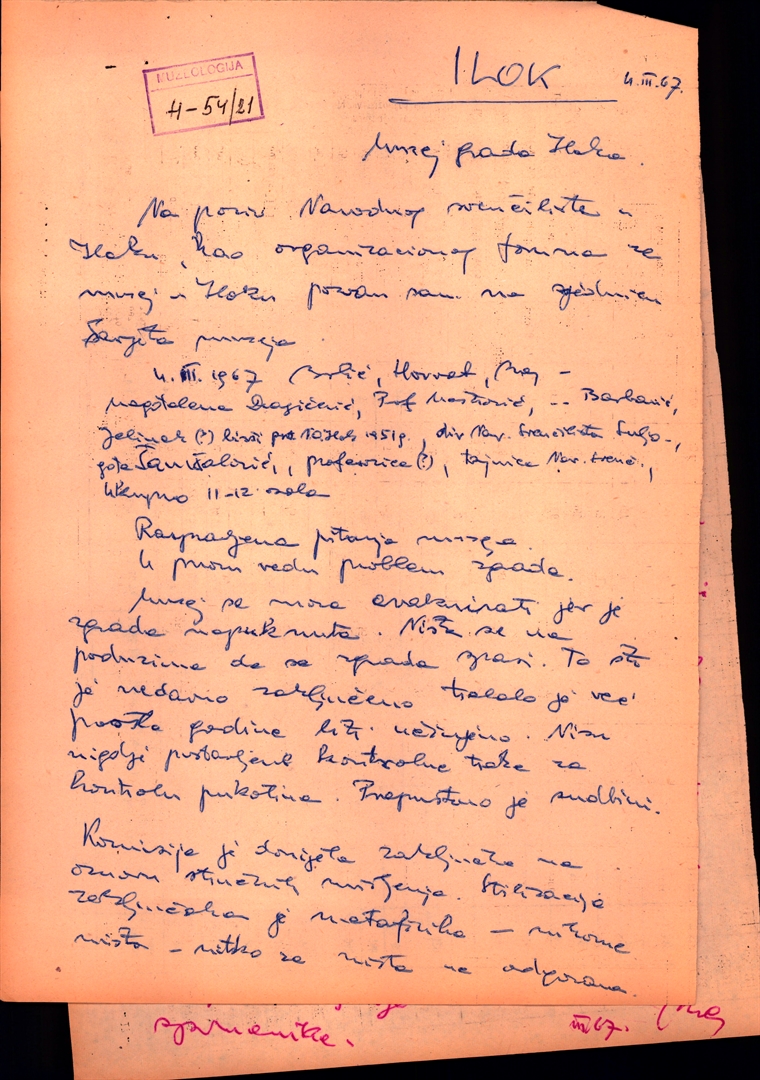 MUZEOLOGIJA
H-54/21
ILOK
4.III.67.
Muzej grada Iloka.
Na poziv Narodnog sveučilišta u
Iloku, kao organizacionog foruma za
muzej u Iloku pozvan sam na sjednicu
Savjeta muzeja
4.III.1967 Horvat,
Magdalena Dragičević, Prof Mašković, Barbarić,
Jelinek (?) 1951g., dir Nar. Sveučilišta
profesorica (?), tajnica Nar. sveuč.,
Ukupno 11-12 osoba
Raspravljena pitanja muzeja.
U prvom redu problem zgrada.
Muzej se mora evakuirati jer je
zgrada napuknuta. Ništa se ne
poduzima da se zgrada spasi. To što
je nedavno zaključeno trebalo je već
prošle godine biti učinjeno. Nisu
nigdje postavljene kontrolne trake za
kontrolu pukotina. Prepušteno je sudbini.
Komisija je donijela zaključke na
osnovu stručnih mišljenja. Stilizacija
zaključaka je metafizika – nikome
ništa – nitko za ništa ne odgovara.
spomenike.
III 67.